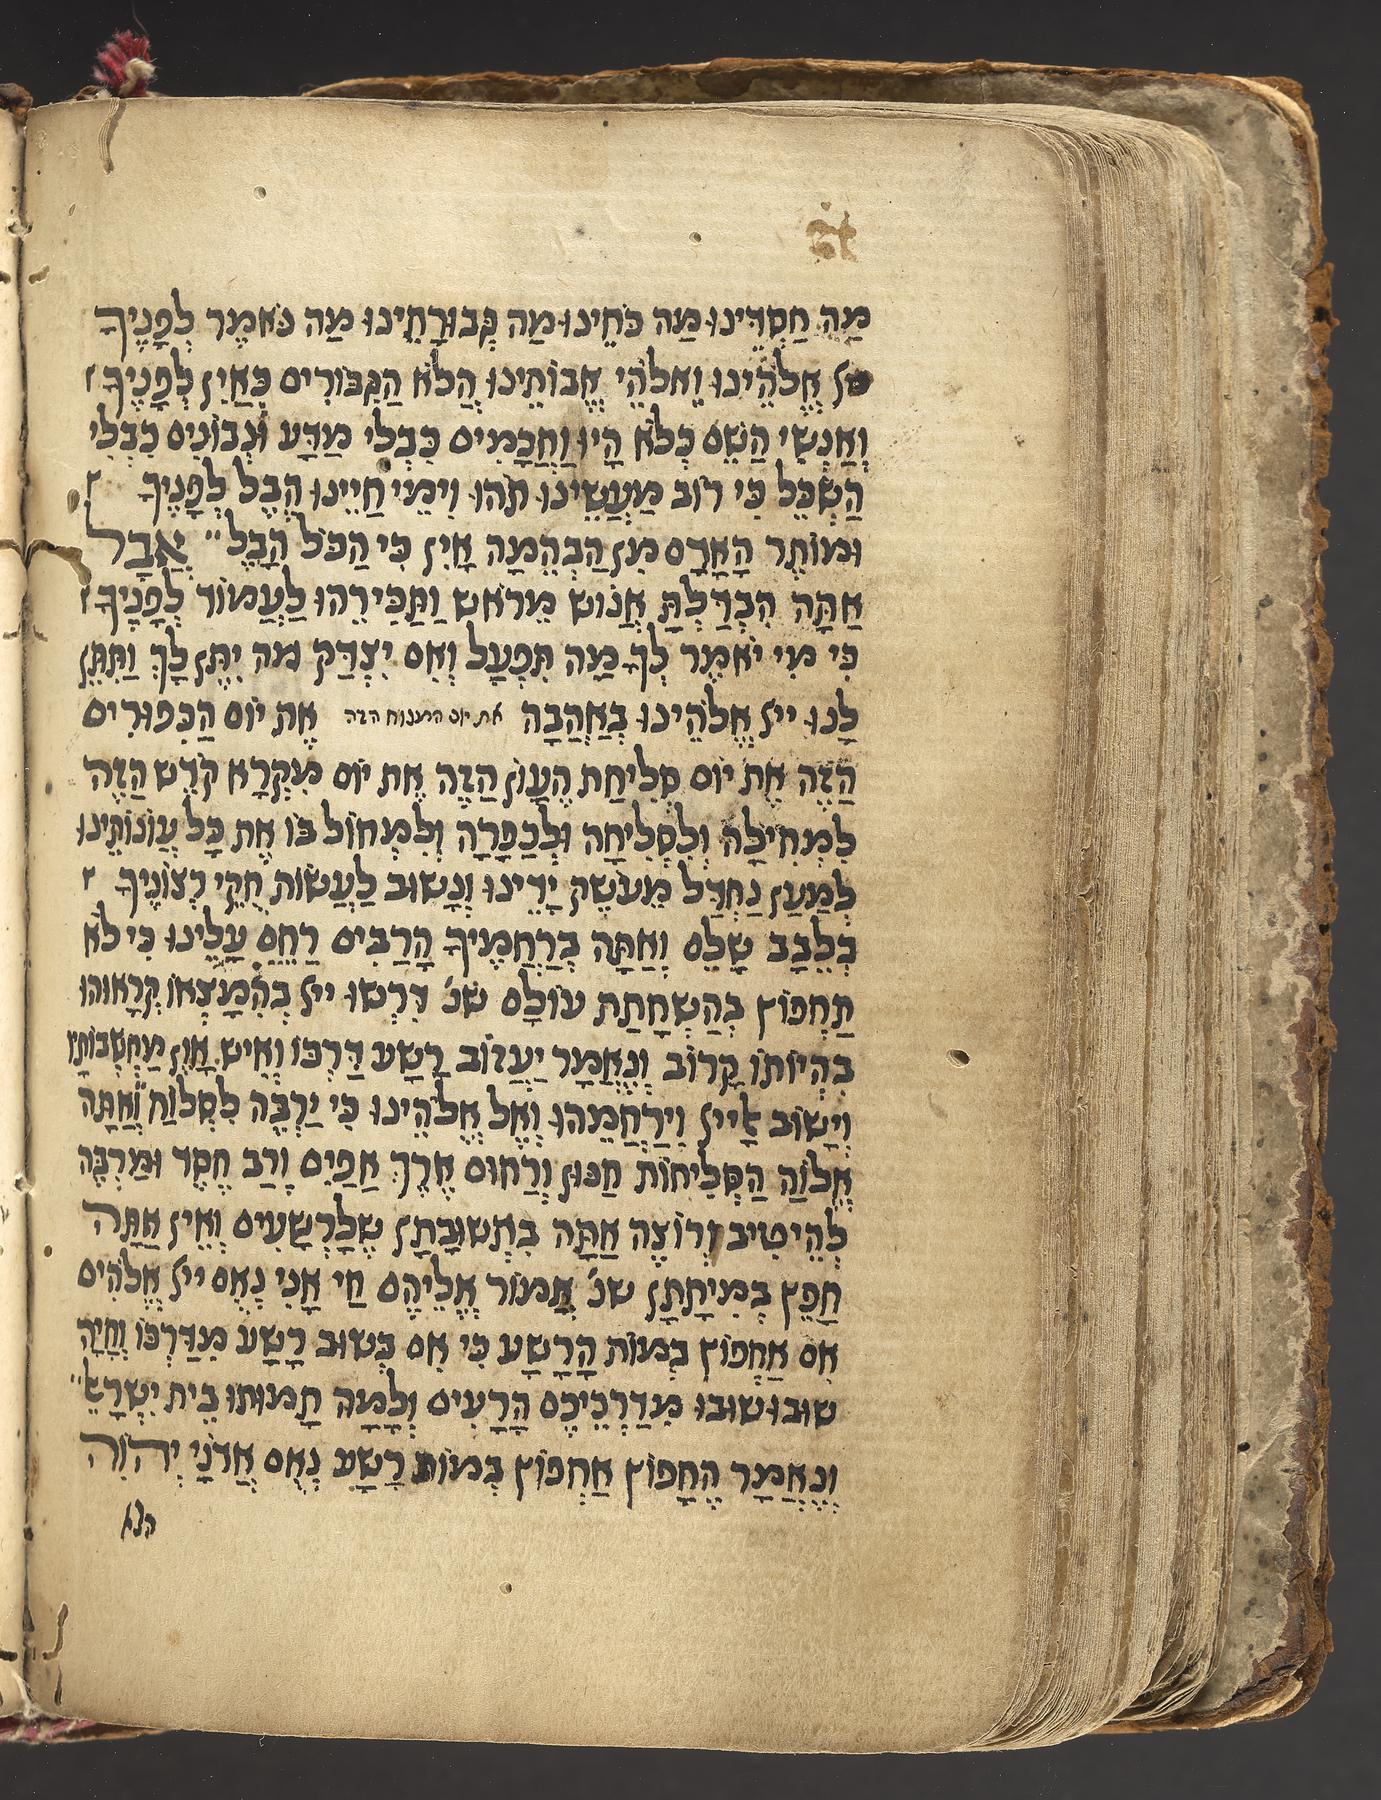 מַה חַסְדֵּינוּ מַה כֹּחֵינוּ מַה גְּבוּרָתֵינוּ מַה נֹּאמַר לְפָנֶיךָ
יי֗ אֱלֹהֵינוּ וֵאלֹהֵי אֲבוֹתֵינוּ הֲלֹא הַגִּבּוֹרִים כְּאַיִן לְפָנֶיךָ
וְאַנְשֵׁי הַשֵּׁם כְּלֹא הָיוּ וַחֲכָמִים כִּבְלִי מַדָּע וּנְבוֹנִים כִּבְלִי
הַשְׂכֵּל כִּי רוֹב מַעֲשֵׂינוּ תֹהוּ וִימֵי חַיֵּינוּ הֶבֶל לְפָנֶיךָ
וּמוֹתַר הָאָדָם מִן הַבְּהֵמָה אָיִן כִּי הַכֹּל הָבֶל״ אֲבָל
אַתָּה הִבְדַּלְתָּ אֱנוֹשׁ מֵרֹאשׁ וַתַּכִּירֵהוּ לַעֲמוֹד לְפָנֶיךָ
כִּי מִי יֹאמַר לְךָ מַה תִּפְעַל וְאִם יִצְדַּק מַה יִתֶּן לָךְ וַתִּתֶּן
לָנוּ יי֗ אֱלֹהֵינוּ בְּאַהֲבָה את יום המנוח הזה אֶת יוֹם הַכִּפּוּרִים
הַזֶּה אֶת יוֹם סְלִיחַת הֶעָוֹן הַזֶּה אֶת יוֹם מִקְרָא קֹדֶשׁ הַזֶּה
לִמְחִילָה וְלִסְלִיחָה וּלְכַפָּרָה וְלִמְחוֹל בּוֹ אֶת כָּל עֲוֹנוֹתֵינוּ
לְמַעַן נֶחְדַּל מֵעֹשֶׁק יָדֵינוּ וְנָשׁוּב לַעֲשׂוֹת חֻקֵּי רְצוֹנֶיךָ
בְּלֵבָב שָׁלֵם וְאַתָּה בְּרַחֲמֶיךָ הָרַבִּים רַחֵם עָלֵינוּ כִּי לֹא
תַחְפּוֹץ בְּהַשְׁחָתַת עוֹלָם שנ֗ דִּרְשׁוּ יי֗ בְּהִמָּצְאוֹ קְרָאוּהוּ
בִּהְיוֹתוֹ קָרוֹב וְנֶאֱמַר יַעֲזוֹב רָשָׁע דַּרְכּוֹ וְאִישׁ אָוֶן מַחְשְׁבוֹתָיו
וְיָשׁוֹב אֶל יי֗ וִירַחֲמֵהוּ וְאֶל אֱלֹהֵינוּ כִּי יַרְבֶּה לִסְלוֹחַ וְאַתָּה
אֱלוֹהַּ הַסְּלִיחוֹת חַנּוּן וְרַחוּם אֶרֶךְ אַפַּיִם וְרַב חֶסֶד וּמַרְבֶּה
לְהֵיטִיב וְרוֹצֶה אַתָּה בִּתְשׁוּבָתָן שֶׁלָּרְשָׁעִים וְאֵין אַתָּה
חָפֵץ בְּמִיתָתָן שנ֗ אֱמוֹר אֲלֵיהֶם חַי אָנִי נְאֻם יי֗ אֱלֹהִים
אִם אֶחְפּוֹץ בְּמוֹת הָרָשָׁע כִּי אִם בְּשׁוּב רָשָׁע מִדַּרְכּוֹ וְחָיָה
שׁוּבוּ שׁוּבוּ מִדַּרְכֵיכֶם הָרָעִים וְלָמָּה תָמוּתוּ בֵּית יִשְׂרָאֵל״
וְנֶאֱמַר הֶחָפוֹץ אֶחְפּוֹץ בְּמוֹת רָשָׁע נְאֻם אֲדֹנָי יְהוִה
הלא